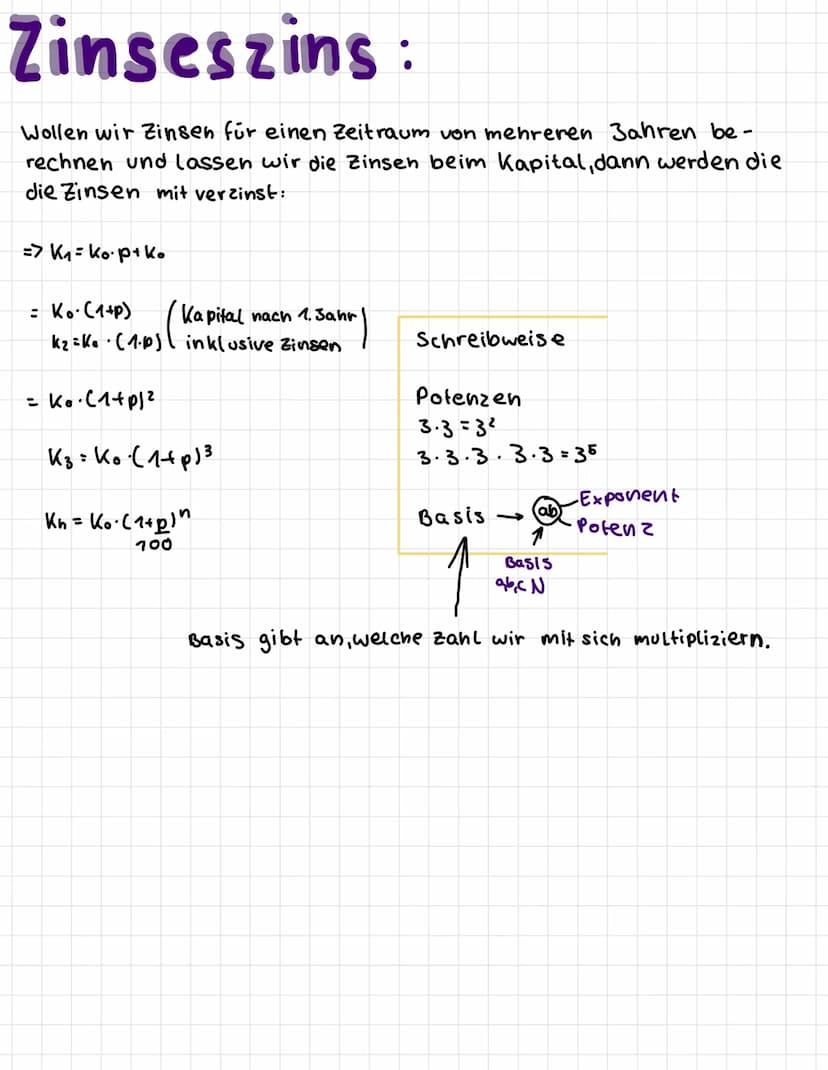 Zinseszins:
Wollen wir Zinsen für einen Zeitraum von mehreren Jahren be-
rechnen und lassen wir die Zinsen beim Kapital, dann werden die
die Zinsen mit verzinst:
=> K₁ = K₀·p+K₀
= K₀·(1+p) (Kapital nach 1. Jahr
K₂ = K₀·(1·p) inklusive Zinsen)
= K₀·(1+p)²
K₃ = K₀·(1+p)³
Kn = K₀·(1+p)ⁿ
100
Schreibweise
Potenzen
3·3=3²
3·3·3·3·3=3⁵
Basis → ab Exponent
Potenz
Basis
a,b,c N
Basis gibt an, welche Zahl wir mit sich multipliziern.